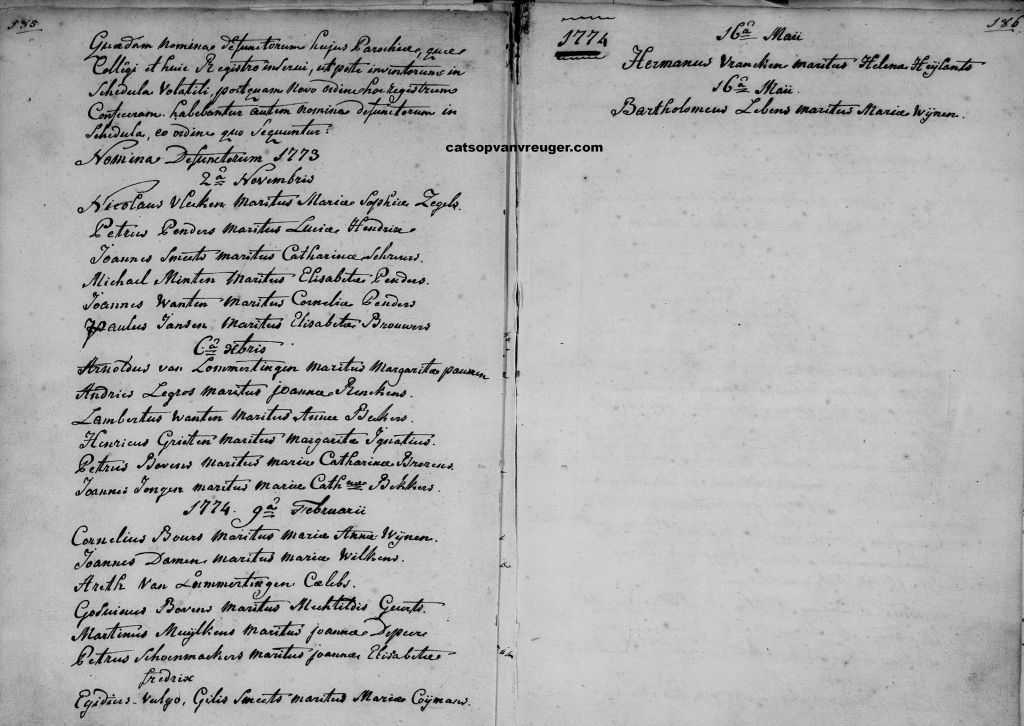 185
Quædam nomina defunctorum hujus Parochiæ, quæ
Collegi et huic Registro inserui, ut pote inventorum in
Schedula Volatili, postquam novo ordine hoc registrum
Confeceram. habebantur autem nomina defunctorum in
Schedula, eo ordine quo Sequuntur:
Nomina Defunctorum 1773
2ª Novembris
Nicolaus Vleken maritus Mariæ Sophiæ Zegels.
Petrus Penders maritus Luciæ Hendrix
Joannes Smeets maritus Catharinæ Schrurs.
Michael Minten maritus Elisabetæ Penders.
Joannes Wanten maritus Corneliæ Penders
Paulus Jansen maritus Elisabetæ Brouwers
6ª Xbris
Arnoldus van Lommertingen maritus Margaritæ paumen
Andries Legros maritus joannæ Renckens.
Lambertus Wanten maritus Annæ Bekers.
Henricus Grieten maritus margaritæ Ignatius.
Petrus Bovens maritus mariæ Catharinæ Brozens.
Joannes Jongen maritus mariæ Cathnæ Bekkers.
1774. 9ª Februarii
Cornelius Bours maritus mariæ Anna Wÿnen.
Joannes Damen maritus mariæ Wilkens.
Areth Van Lommertingen Cælebs.
Gosuinus Bovens maritus Mechtildis Geurts.
Martinus Muÿlkens maritus joannæ Depure
Petrus Schoenmackers maritus joannæ Elisabetæ
fredrix
Egidius vulgo, Gilis Smeets maritus Mariæ Coÿmans.
186
1774
16ª Maii
Hermanus Vrancken maritus Helena Heÿlants
16ª Maii.
Bartholomeus Lebens maritus Mariæ Wÿnen.
catsopvanvreuger.com